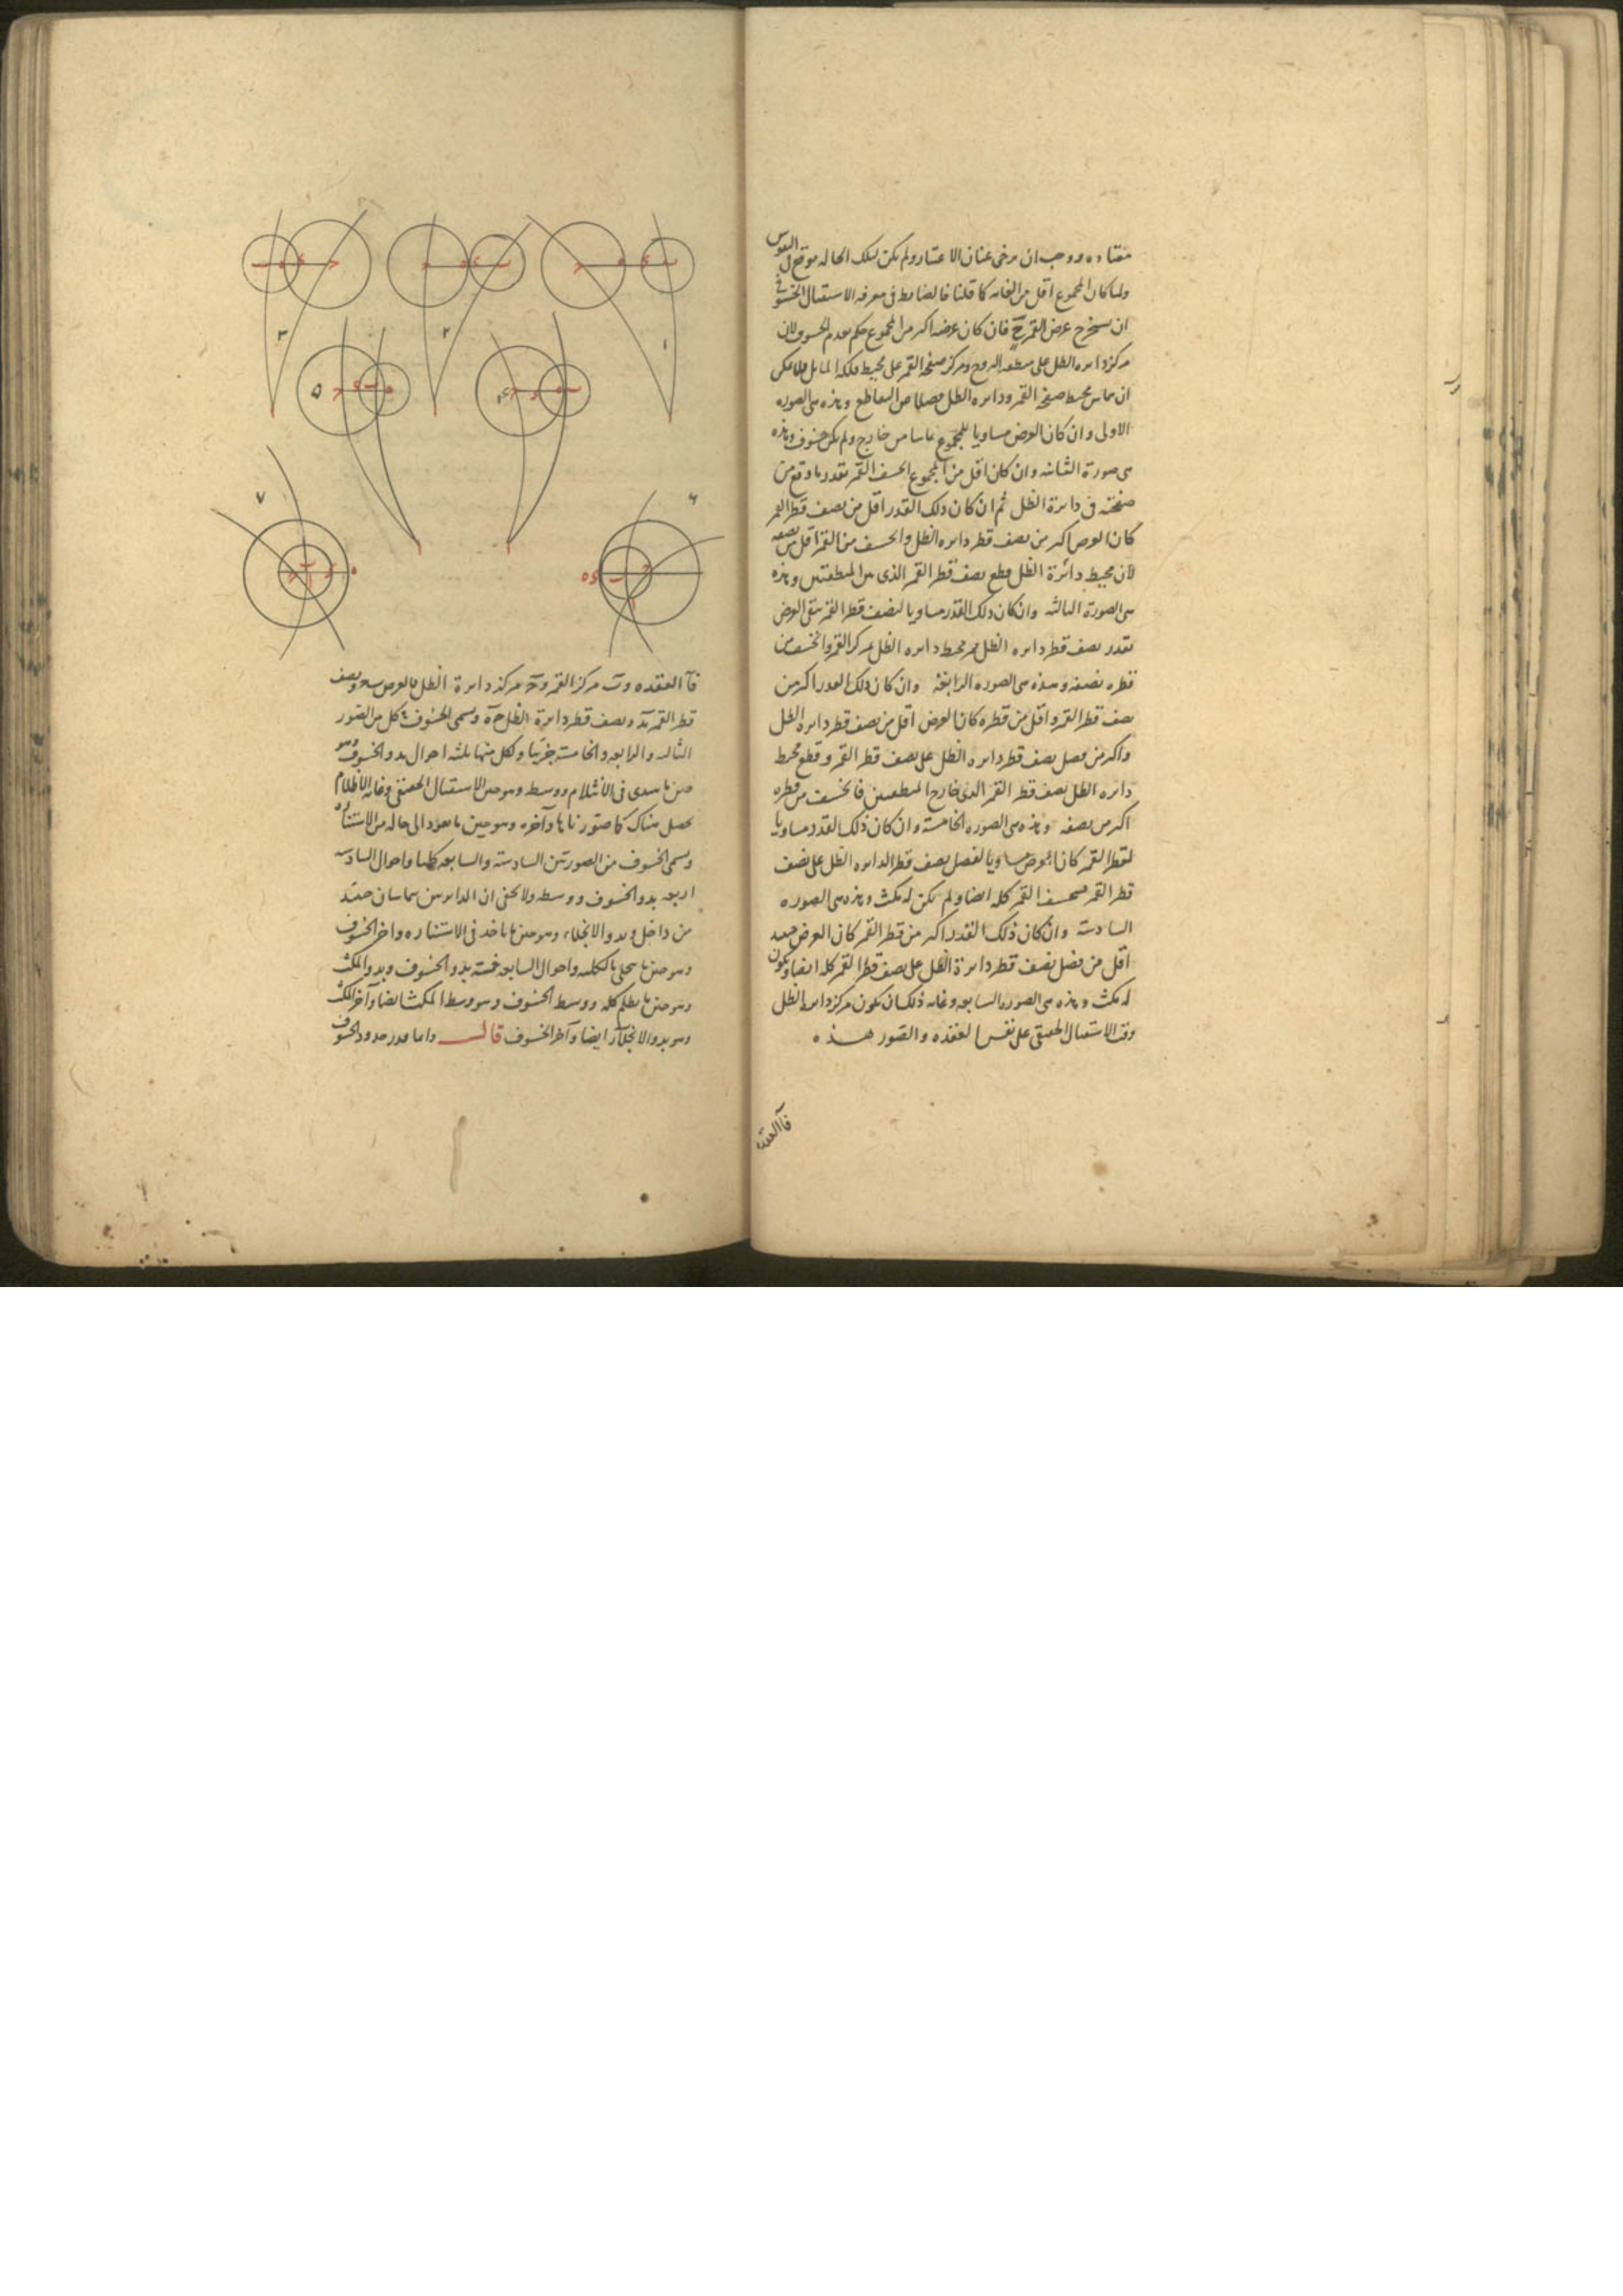 معتاده ووجب ان يرخى عنان الاعتبار ولم يكن لتلك الحاله موقع فى النفوس
ولما كان المجموع اقل من الغايه كما قلنا فالضابط فى معرفه الاستقبال الخسوفى
ان يستخرج عرض القمر ح فان كان عرضه اكبر من المجموع حكم بعدم الخسوف لان
مركز دايره الظل على منطقه البروج ومركز صفحه القمر على محيط فلكه المايل فلا يمكن
ان يماس محيط صفحه القمر ودايره الظل فضلا عن التقاطع وهذه هى الصوره
الاولى وان كان العرض مساويا للمجموع تماسا من خارج ولم يكن خسوف وهذه
هى صورة الثانيه وان كان اقل من المجموع انخسف القمر بقدر ما وقع من
صفحته فى دايرة الظل ثم ان كان ذلك القدر اقل من نصف قطر القمر
كان العرض اكبر من نصف قطر دايره الظل وانخسف من القمر اقل من نصفه
لان محيط دائرة الظل قطع نصف قطر القمر الذى بين المنطقتين وهذه
هى الصورة الثالثه وان كان ذلك القدر مساويا لنصف قطر القمر بقى العرض
بقدر نصف قطر دايره الظل فمر محيط دايره الظل بمركز القمر وانخسف من
قطره نصفه وهذه هى الصوره الرابعة وان كان ذلك القدر اكبر من
نصف قطر القمر واقل من قطره كان العرض اقل من نصف قطر دايره الظل
واكبر من فضل نصف قطر دايره الظل على نصف قطر القمر وقطع محيط
دايره الظل نصف قطر القمر الذى خارج المنطقتين فانخسف من قطره
اكبر من نصفه وهذه هى الصوره الخامسة وان كان ذلك القدر مساويا
لقطر القمر كان العرض مساويا لفضل نصف قطر الدايره الظل على نصف
قطر القمر فينخسف القمر كله ايضا ولم يكن له مكث وهذه هى الصوره
السادسة وان كان ذلك القدر اكبر من قطر القمر كان العرض حينئذ
اقل من فضل نصف قطر دايرة الظل على نصف قطر القمر كله ايضا ويكون
له مكث وهذه هى الصوره السابعه وغايه ذلك ان يكون مركز دايره الظل
وقت الاستقبال الحقيقى على نفس العقده والصور هذه
فآ العقدة
٣
٢
١
٥
٤
٧
٦
فآ العقده وب مركز القمر وح مركز دايرة الظل فالعرض ب ح ونصف
قطر القمر ب د ونصف قطر دايرة الظل ح ه ويسمى الخسوف فى كل من الصور
الثالثه والرابعه والخامسة جزئيا ولكل منها ثلثه احوال بدو الخسوف وهو
حين ما يبتدى فى الانثلام ووسطه وهو حين الاستقبال الحقيقى وغايه الاظلام
يحصل هناك كما صورناها وآخره وهو حين ما يعود الى حاله من الاستناره
ويسمى الخسوف من الصورتين السادسة والسابعه كليا واحوال السادسه
اربعه بدو الخسوف ووسطه ولا يخفى ان الدايرتين يتماسان حينئذ
من داخل وبدو الانجلاء وهو حين ما ياخذ فى الاستناره واخر الخسوف
وهو حين ما ينجلى بالكليه واحوال السابعه خمسة بدو الخسوف وبدو المكث
وهو حين ما يظلم كله ووسط الخسوف وهو وسط المكث ايضا وآخر المكث
وهو بدو الانجلاء ايضا وآخر الخسوف قال واما قدر حدود الخسوف